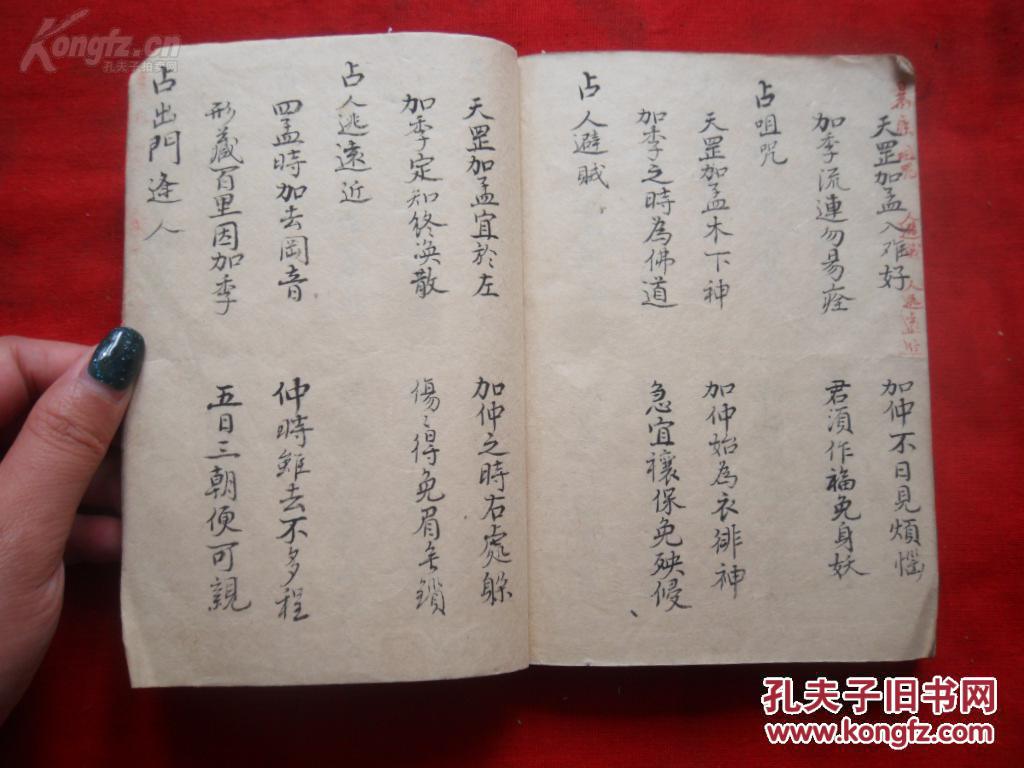 天罡加孟人难好
加仲不日見煩惱
加季流連勿易痊
君須作福免身妖
占咀咒
天罡加孟木下神
加仲始為衣徘神
加季之時為佛道
急宜禳保免殃侵
占人避贼
天罡加孟宜於左
加仲之時右處躲
加季定知終渙散
傷〻得免眉鎖
占人逃遠近
四孟時加去岡音
仲時雖去不多程
形藏百里因加季
五日三朝便可親
占出門逢人
Kongfz.cn
孔夫子拍卖网
孔夫子旧书网
KONGFZ.COM